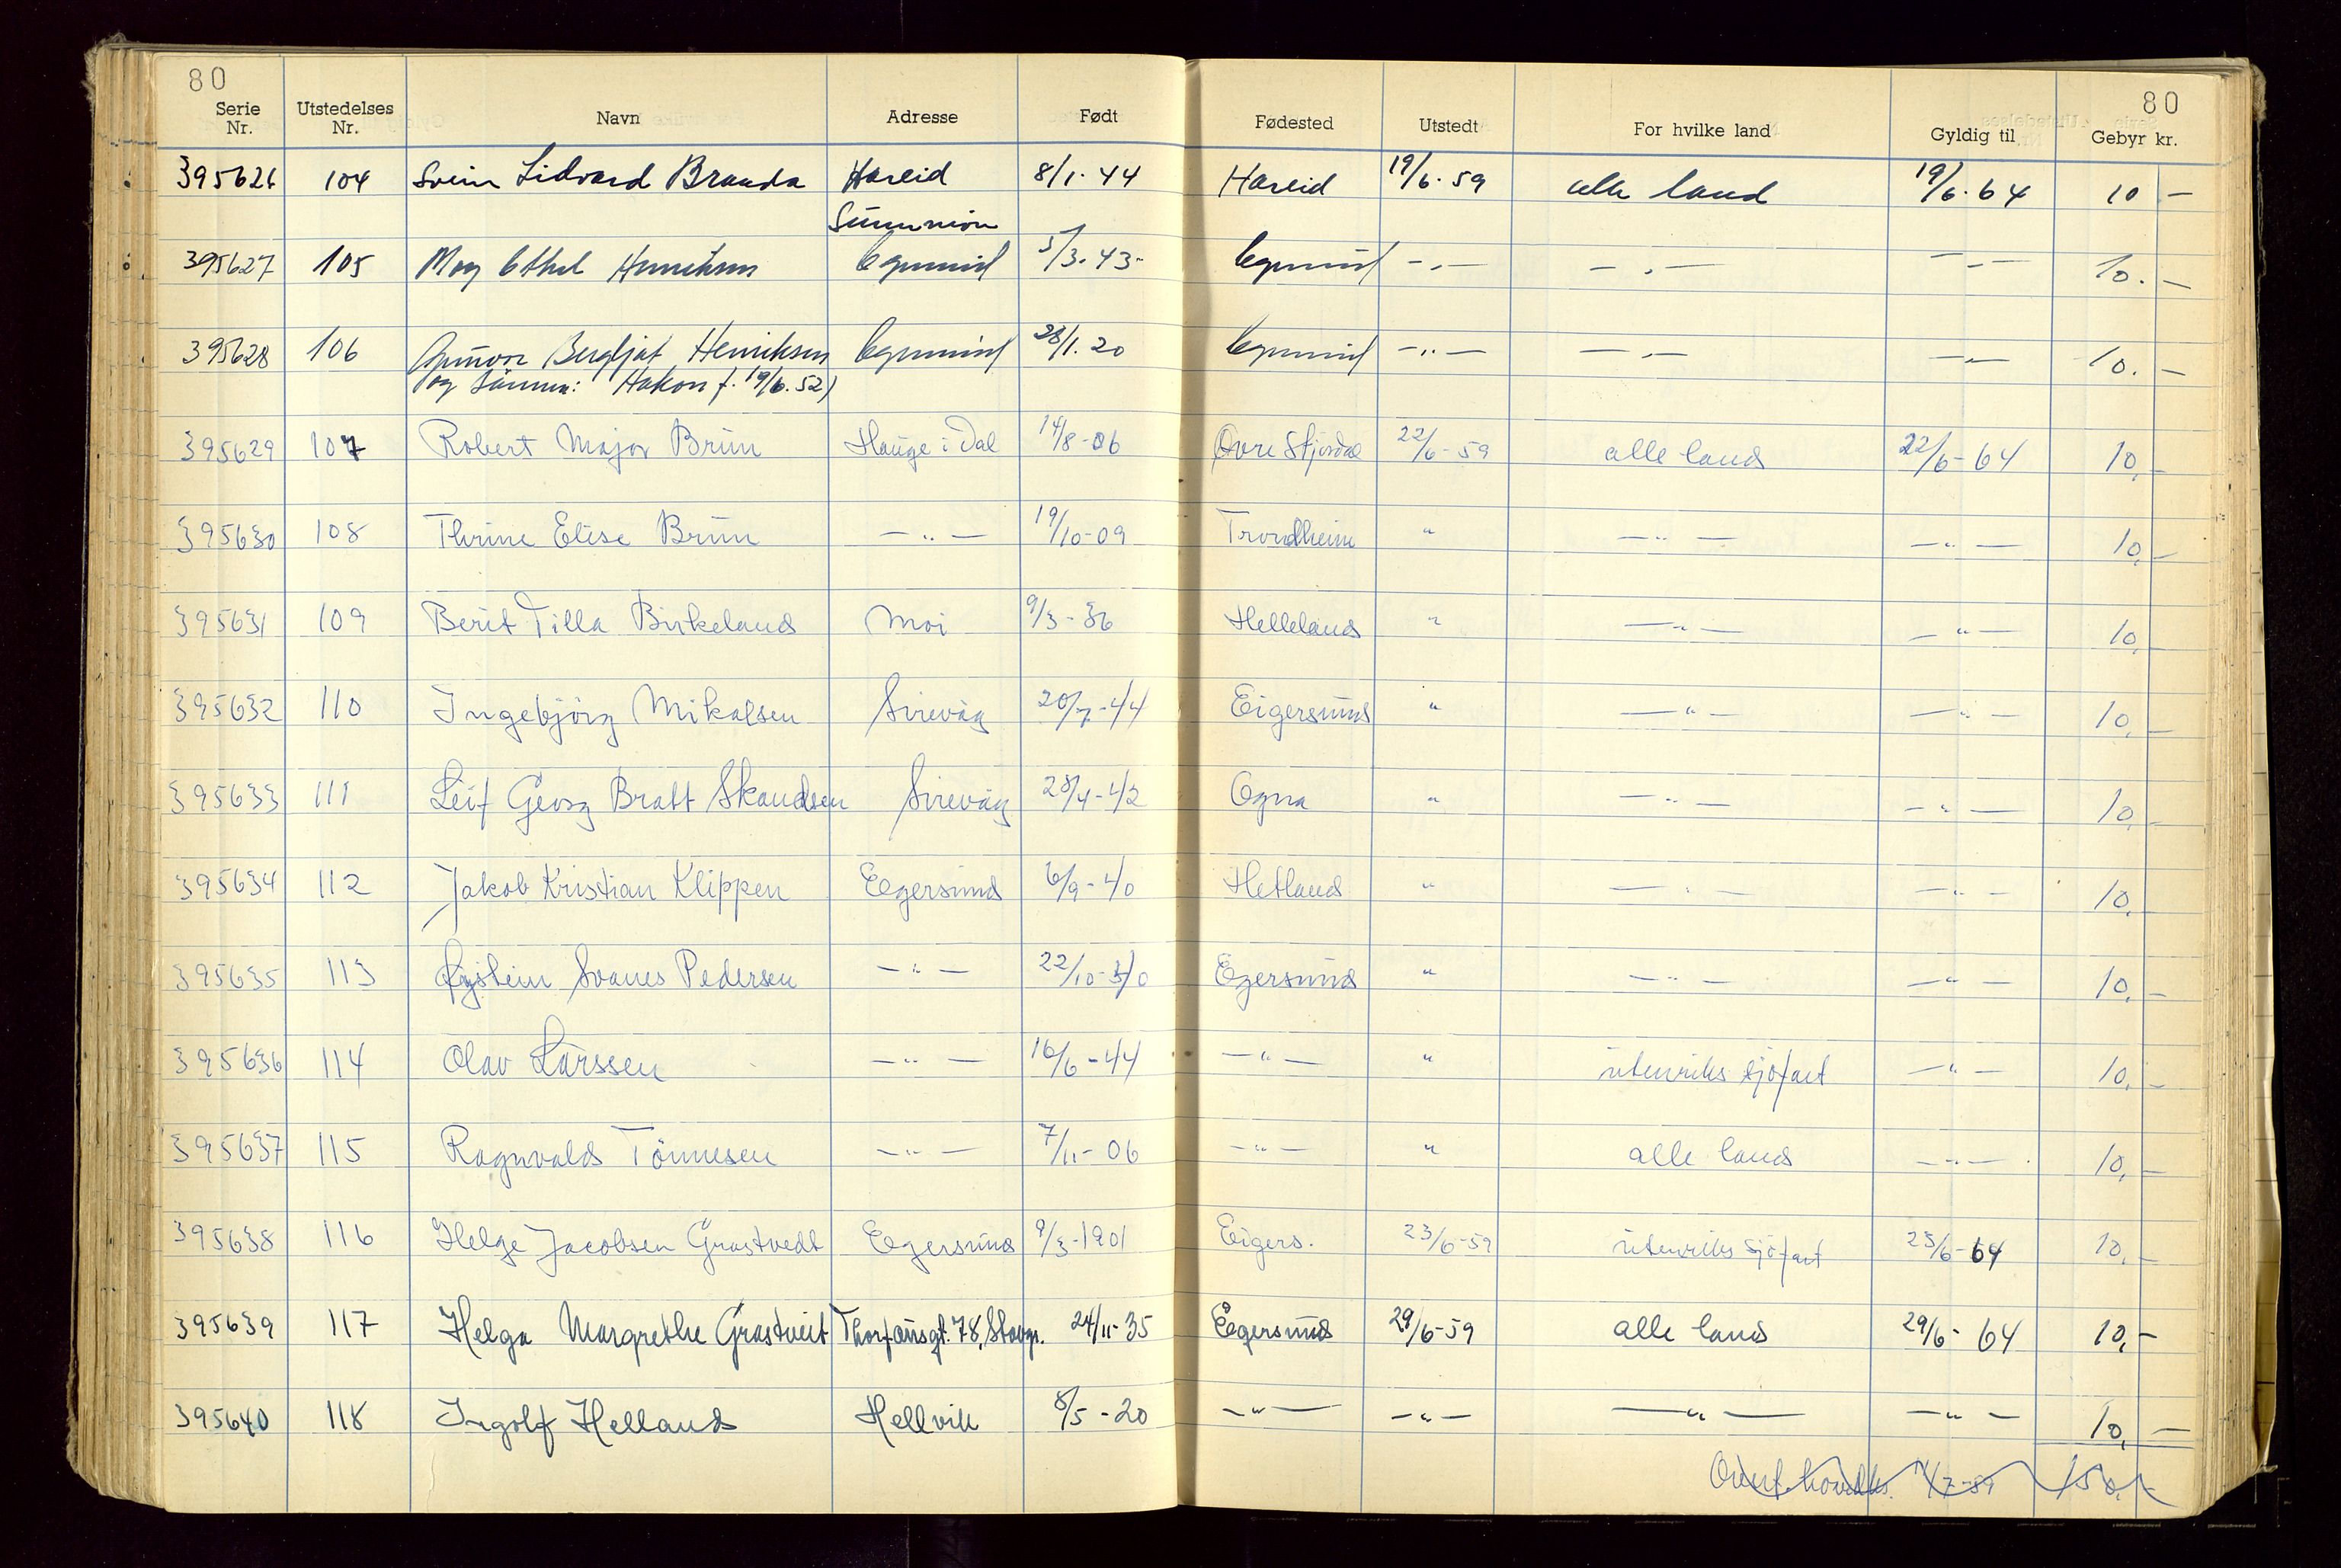 80
80
Serie Nr. Utstedelses Nr. Navn Adresse Født Fødested Utstedt For hvilke land Gyldig til Gebyr kr.
395626 104 Svein Sidvard Brauda Hareid 8/1. 44 Hareid 19/6. 59 alle land 19/6. 64 10 —
Sunnmøre
395627 105 May Ethel Henriksen Egersund 5/3. 43- Egersund — " — — " — — " — 10. —
395628 106 Gunvor Bergljot Henriksen Egersund 28/1. 20 Egersund — " — — " — — " — 10. —
(og sønnen: Håkon f. 19/6. 52)
395629 107 Robert Major Brun Hauge i Dal 14/8-06 Øvre Stjørdal 22/6-59 alle land 22/6-64 10,-
395630 108 Thrine Elise Brun — " — 19/10-09 Trondheim " — " — — " — 10,-
395631 109 Berit Tilla Birkeland Moi 9/3-36 Helleland " — " — — " — 10,-
395632 110 Ingebjørg Mikalsen Sirevåg 20/7-44 Eigersund " — " — — " — 10,-
395633 111 Leif Georg Bratt Skandsen Sirevåg 28/4-42 Ogna " — " — — " — 10,-
395634 112 Jakob Kristian Klippen Egersund 6/9-40 Hetland " — " — — " — 10,-
395635 113 Øystein Svanes Pedersen — " — 22/10-40 Egersund " — " — — " — 10,-
395636 114 Olav Larssen — " — 16/6-44 — " — " utenriks sjøfart — " — 10,-
395637 115 Ragnvald Tönnesen — " — 7/11-06 — " — " alle land — " — 10,-
395638 116 Helge Jacobsen Grastvedt Egersund 9/3-1901 Eigers. 23/6-59 utenriks sjøfart 23/6-64 10,-
395639 117 Helga Margrethe Grastveit Thorfæusgt. 78, Stavgr. 24/11-35 Egersund 29/6-59 alle land 29/6-64 10,-
395640 118 Ingolf Helland Hellvik 8/5-20 — " — — " — — " — — " — 10,-
1/7-59 150,-